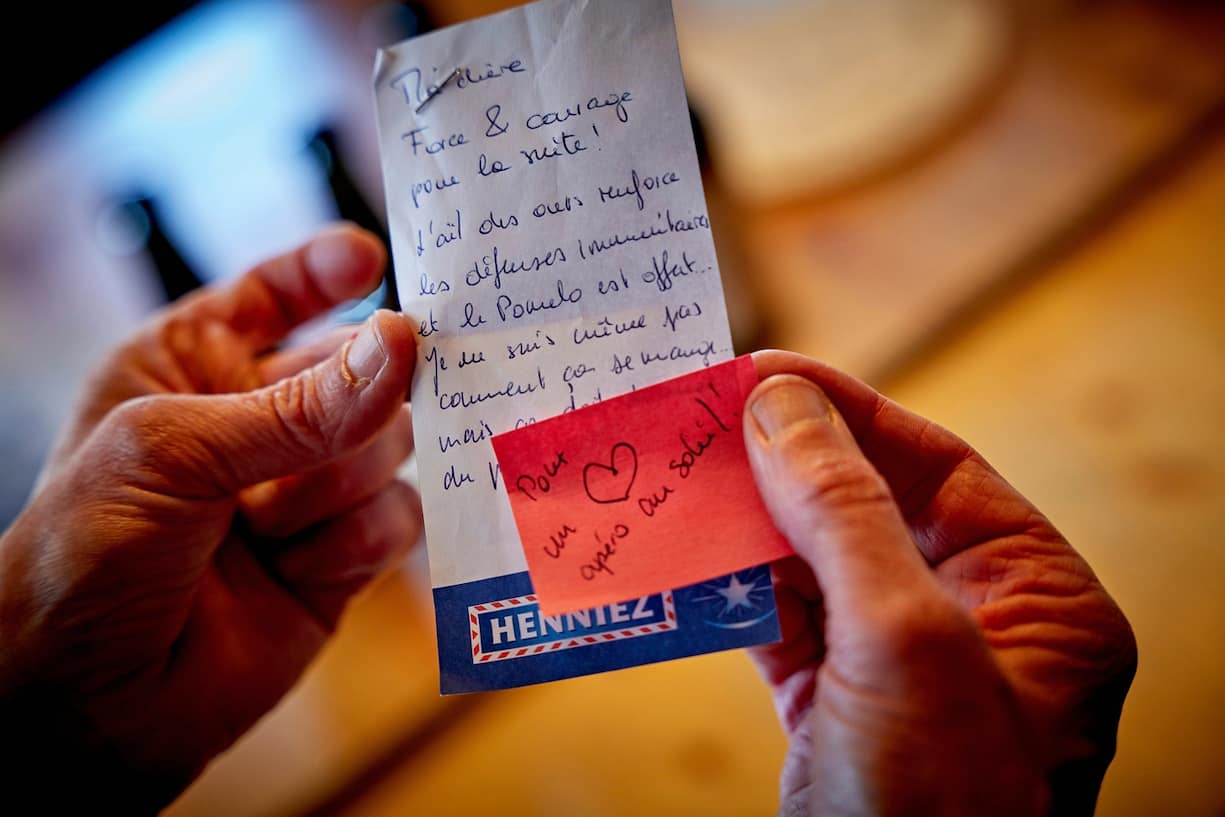 Force & courage
pour la suite !
L'ail des ours renforce
les défenses immunitaires
et le Pomelo est offert...
Je ne sais même pas
comment ça se mange...
mais ça doit
du
Pour ♡
un apéro au soleil !
HENNIEZ